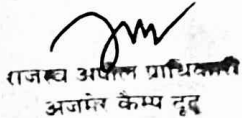 राजस्व अपील प्राधिकारी
अजमेर कैम्प दूदू